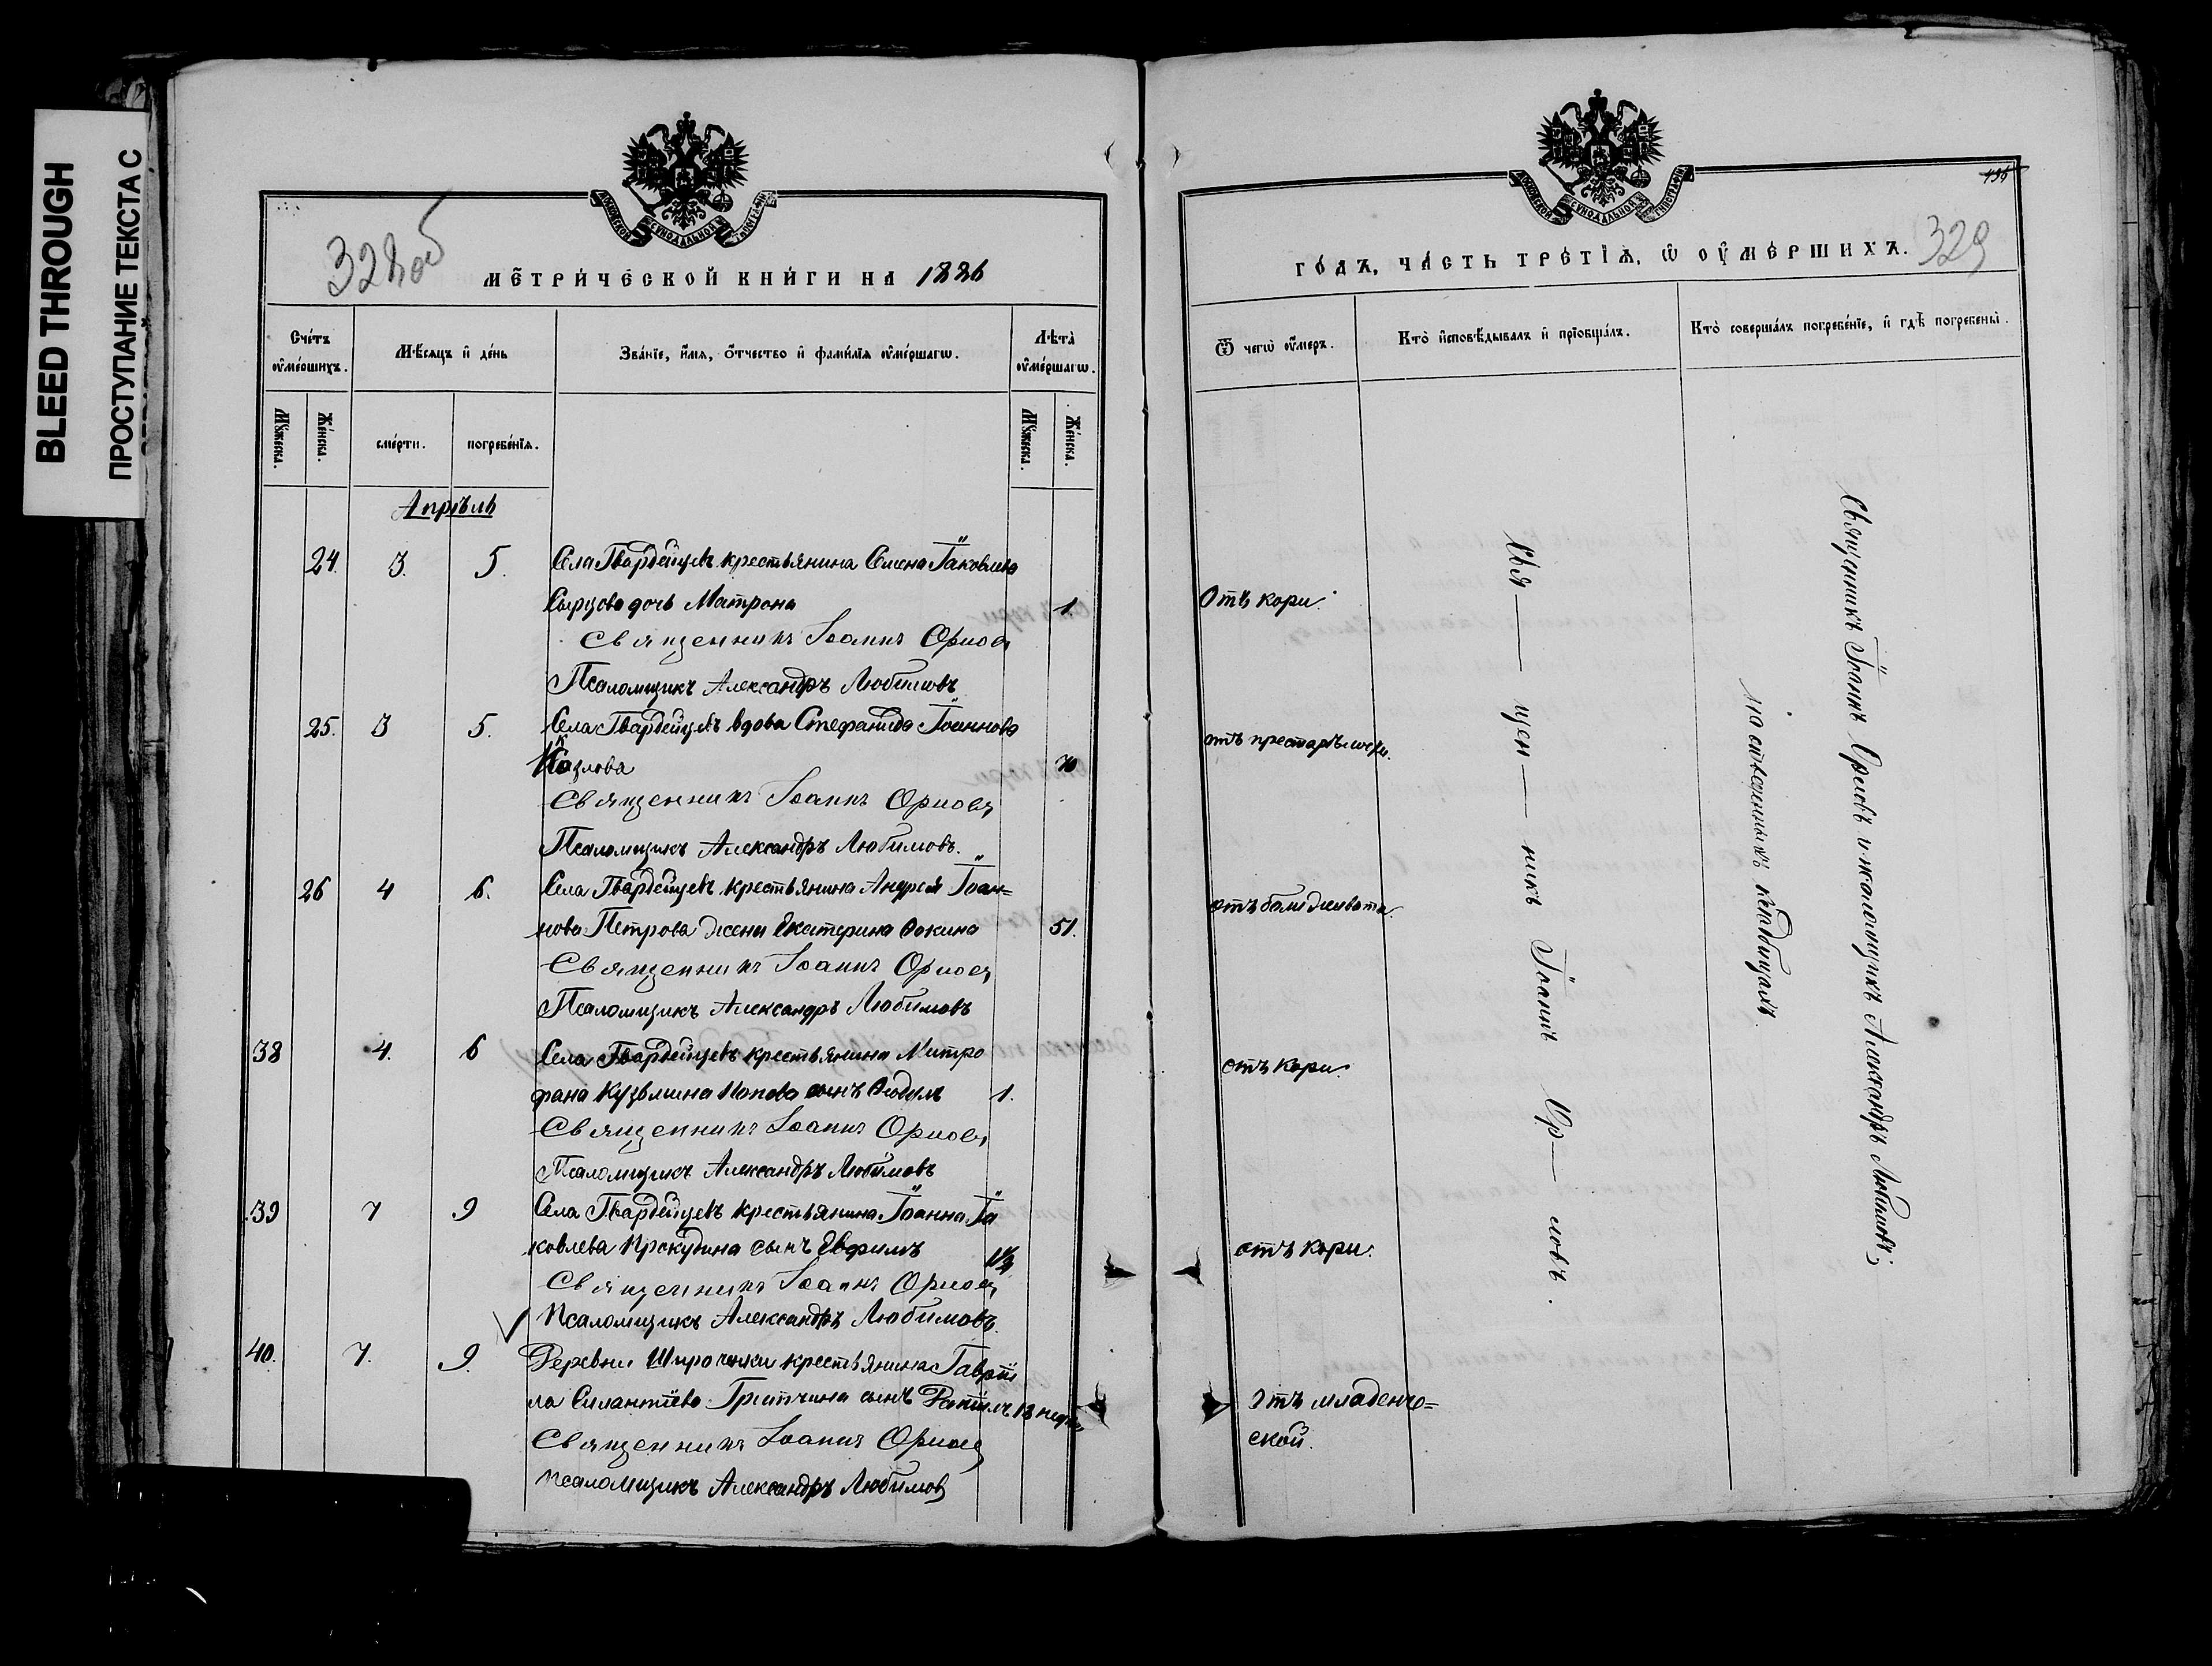 BLEED THROUGH
ПРОСТУПАНИЕ ТЕКСТА С
328об
МЕТРИЧЕСКОЙ КНИГИ НА 1886
Счетъ оумершихъ.
Мѣсяцъ и день
Званіе, имя, отчество и фамилія оумершагѡ.
Лѣта оумершагѡ.
Мужеска.
Женска.
смерти.
погребенія.
Мужеска.
Женска.
Апрѣль
24. 3. 5. Села Гвардейцевъ крестьянина Семена Іаковлева
Сырцова дочь Матрона 1.
Священникъ Іоаннъ Орловъ
Псаломщикъ Александръ Любимовъ
25. 3 5. Села Гвардейцевъ вдова Стефанида Іоаннова
Козлова 70
Священникъ Іоаннъ Орловъ
Псаломщикъ Александръ Любимовъ.
26 4 6. Села Гвардейцевъ крестьянина Андрея Іоан=
нова Петрова жена Екатерина Фокина 51.
Священникъ Іоаннъ Орловъ
Псаломщикъ Александръ Любимовъ
38 4. 6 Села Гвардейцевъ крестьянина Митро
фана Кузьмина Попова сынъ 1.
Священникъ Іоаннъ Орловъ
Псаломщикъ Александръ Любимовъ
39 7 9 Села Гвардейцевъ крестьянина Іоанна Іа
ковлева Прокудина сынъ Евфимъ 1½
Священникъ Іоаннъ Орловъ
Псаломщикъ Александръ Любимовъ
40. 7. 9. Деревни крестьянина Гаврiи
ла Силантіева сынъ 13 недѣль
Священникъ Іоаннъ Орловъ
Псаломщикъ Александръ Любимовъ
196
329
ГОДЪ, ЧАСТЬ ТРЕТІЯ, Ѡ ОУМЕРШИХЪ.
Ѿ чегѡ оумеръ.
Кто исповѣдывалъ и пріобщалъ.
Кто совершалъ погребеніе, и гдѣ погребены.
Отъ кори.
отъ престарѣлости.
отъ боли живота
отъ кори.
отъ кори.
Отъ младенче=
ской.
Свя — щен — никъ Іоаннъ Ор — ловъ.
Священникъ Іоаннъ Орловъ и псаломщикъ Александръ Любимовъ;
на отведенныхъ кладбищахъ.